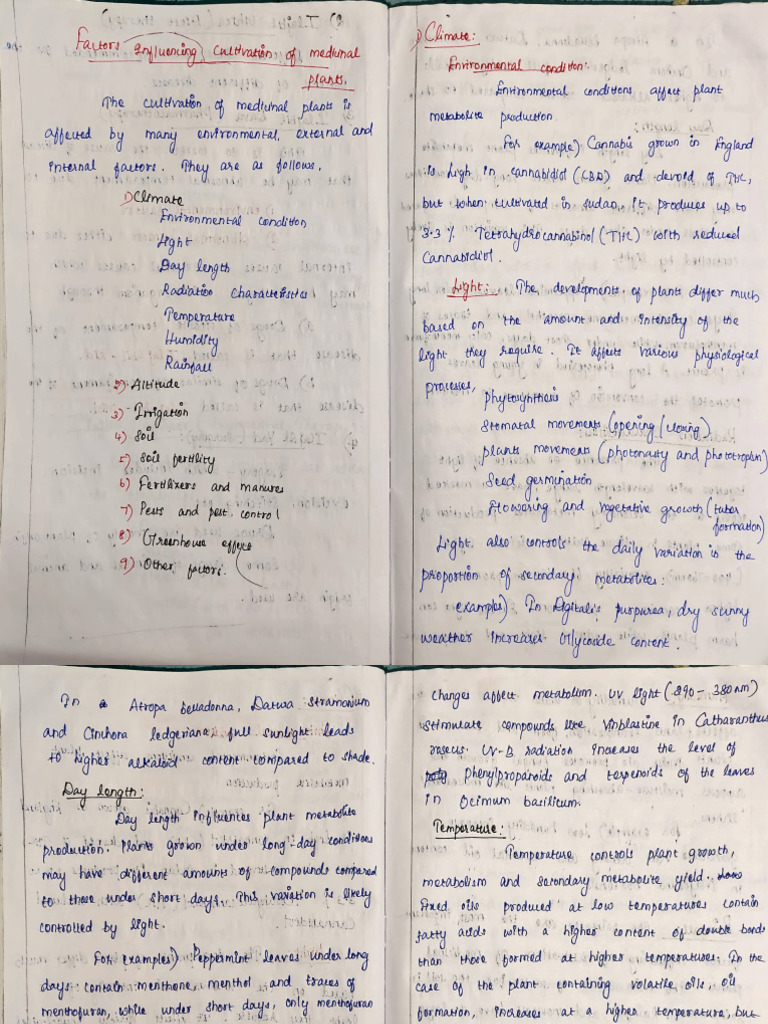 Factors Influencing Cultivation of medicinal
plants.
The cultivation of medicinal plants is
affected by many environmental, external and
internal factors. They are as follows,
1) Climate
Environmental condition
Light
Day length
Radiation characteristics
Temperature
Humidity
Rainfall
2) Altitude
3) Irrigation
4) Soil
5) Soil fertility
6) Fertilizers and manures
7) Pests and pest control
8) Greenhouse effect
9) Other factors.
1) Climate:
Environmental condition:
Environmental conditions affect plant
metabolite production.
For example) Cannabis grown in England
is high in cannabidiol (CBD) and devoid of THC,
but when cultivated in sudan, it produces up to
3.3% Tetrahydrocannabinol (THC) with reduced
Cannabidiol.
Light: The developments of plants differ much
based on the amount and intensity of the
light they require. It affects various physiological
processes,
photosynthesis
Stomatal movements (opening / closing)
plants movements (photonasty and phototropism)
Seed germination
Flowering and vegetative growth (tuber
formation)
Light also controls the daily variation is the
proportion of secondary metabolites:
examples) In Digitalis purpurea, dry sunny
weather increases Glycoside content.
In Atropa belladonna, Datura stramonium
and Cinchora ledgeriana, full sunlight leads
to higher alkaloid content compared to shade.
Day length:
Day length influences plant metabolite
production. Plants grown under long-day conditions
may have different amounts of compounds compared
to those under short days. This variation is likely
controlled by light.
For examples) Peppermint leaves under long
days contain menthone, menthol and traces of
menthofuran, while under short days, only menthofuran
changes affect metabolism. UV light (290 - 380nm)
stimulate compounds like vinblastine in Catharanthus
roseus. UV-B radiation increases the level of
Phenylpropanoids and terpenoids of the leaves
in Ocimum basilicum.
Temperature:
Temperature controls plant growth,
metabolism and secondary metabolite yield.
Fixed oils produced at low temperatures contain
fatty acids with a higher content of double bonds
than those formed at higher temperatures. In the
case of the plant containing volatile oils, oil
formation, increases at a higher temperature, but